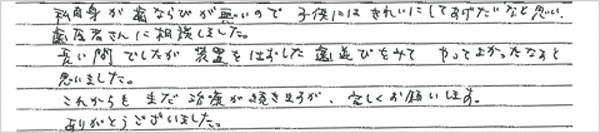 私自身が歯ならびが悪いので子供にはきれいにしてあげたいなと思い、
歯医者さんに相談しました。
長い間でしたが装置をはずした歯並びをみてやってよかったなあと
思いました。
これからもまだ治療が続きますが、宜しくお願いします。
ありがとうございました。